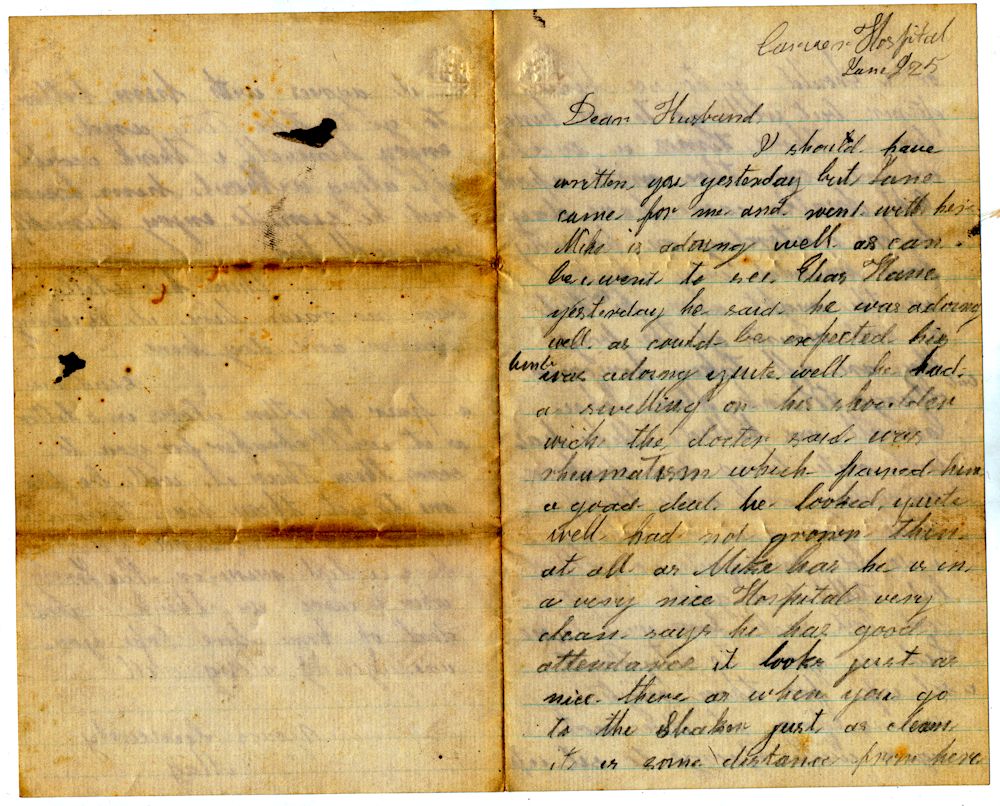 Carver Hospital
June 25
Dear Husband
I should have
written you yesterday but Jane
came for me and went with her
Mike is adoing well as can
be i went to see Chas Hane
yesterday he said he was adoing
well as could be expected his
limb was adoing quite well he had
a swelling on his shoulder
wich the docter said was
rheumatism which pained him
a good deal he looked quite
well had not grown thin
at all as Mike has he is in
a very nice Hospital very
clean says he has good
attendance it looks just as
nice there as when you go
to the Shaker just as clean
it is some distance from here